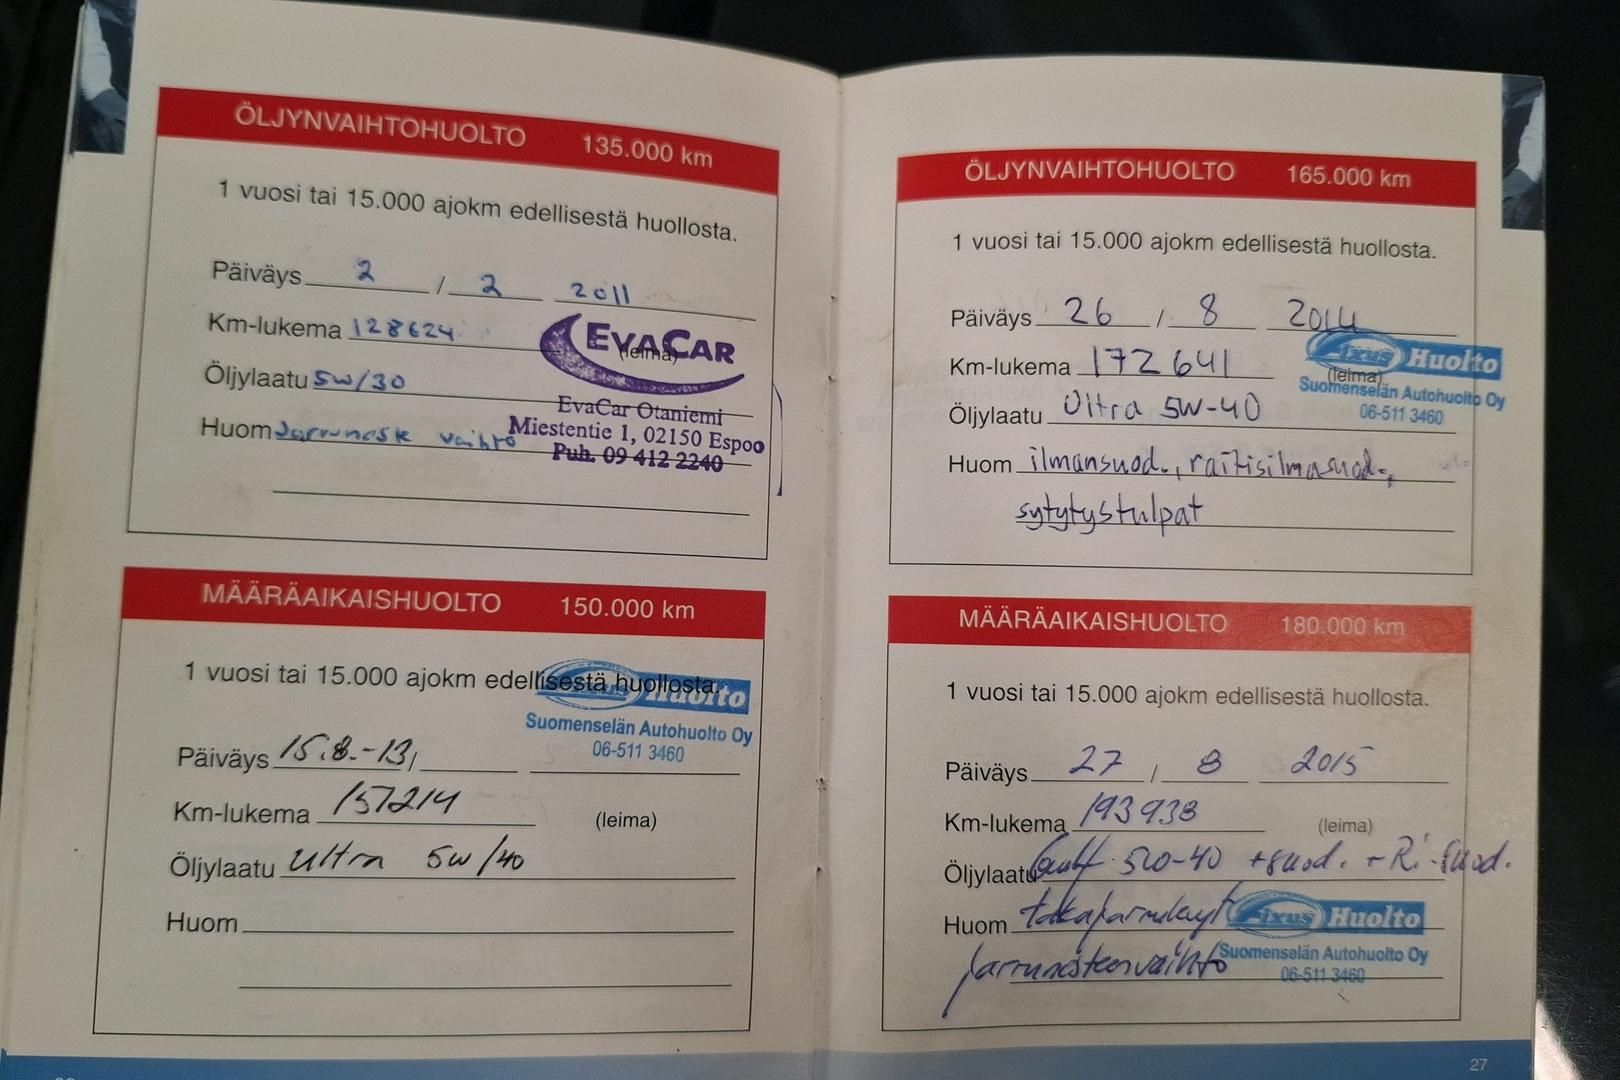 ÖLJYNVAIHTOHUOLTO 135.000 km
1 vuosi tai 15.000 ajokm edellisestä huollosta.
Päiväys 2 / 2 2011
Km-lukema 128624 (leima)
EVACAR
Öljylaatu 5w/30
EvaCar Otaniemi
Huom Jarruneste vaihto
Miestentie 1, 02150 Espoo
Puh. 09 412 2240
MÄÄRÄAIKAISHUOLTO 150.000 km
1 vuosi tai 15.000 ajokm edellisestä huollosta.
Fixus Huolto
Suomenselän Autohuolto Oy
06-511 3460
Päiväys 15.8.-13 /
Km-lukema 157214 (leima)
Öljylaatu ultra 5w/40
Huom
ÖLJYNVAIHTOHUOLTO 165.000 km
1 vuosi tai 15.000 ajokm edellisestä huollosta.
Päiväys 26 / 8 2014
Fixus Huolto
Km-lukema 172641 (leima)
Suomenselän Autohuolto Oy
06-511 3460
Öljylaatu Ultra 5W-40
Huom ilmansuod., raitisilmasuod.,
sytytystulpat
MÄÄRÄAIKAISHUOLTO 180.000 km
1 vuosi tai 15.000 ajokm edellisestä huollosta.
Päiväys 27 / 8 2015
Km-lukema 193938 (leima)
Öljylaatu 5W-40 +suod. + Ri-suod.
Huom
Fixus Huolto
jarrunesteenvaihto
Suomenselän Autohuolto Oy
06-511 3460
27